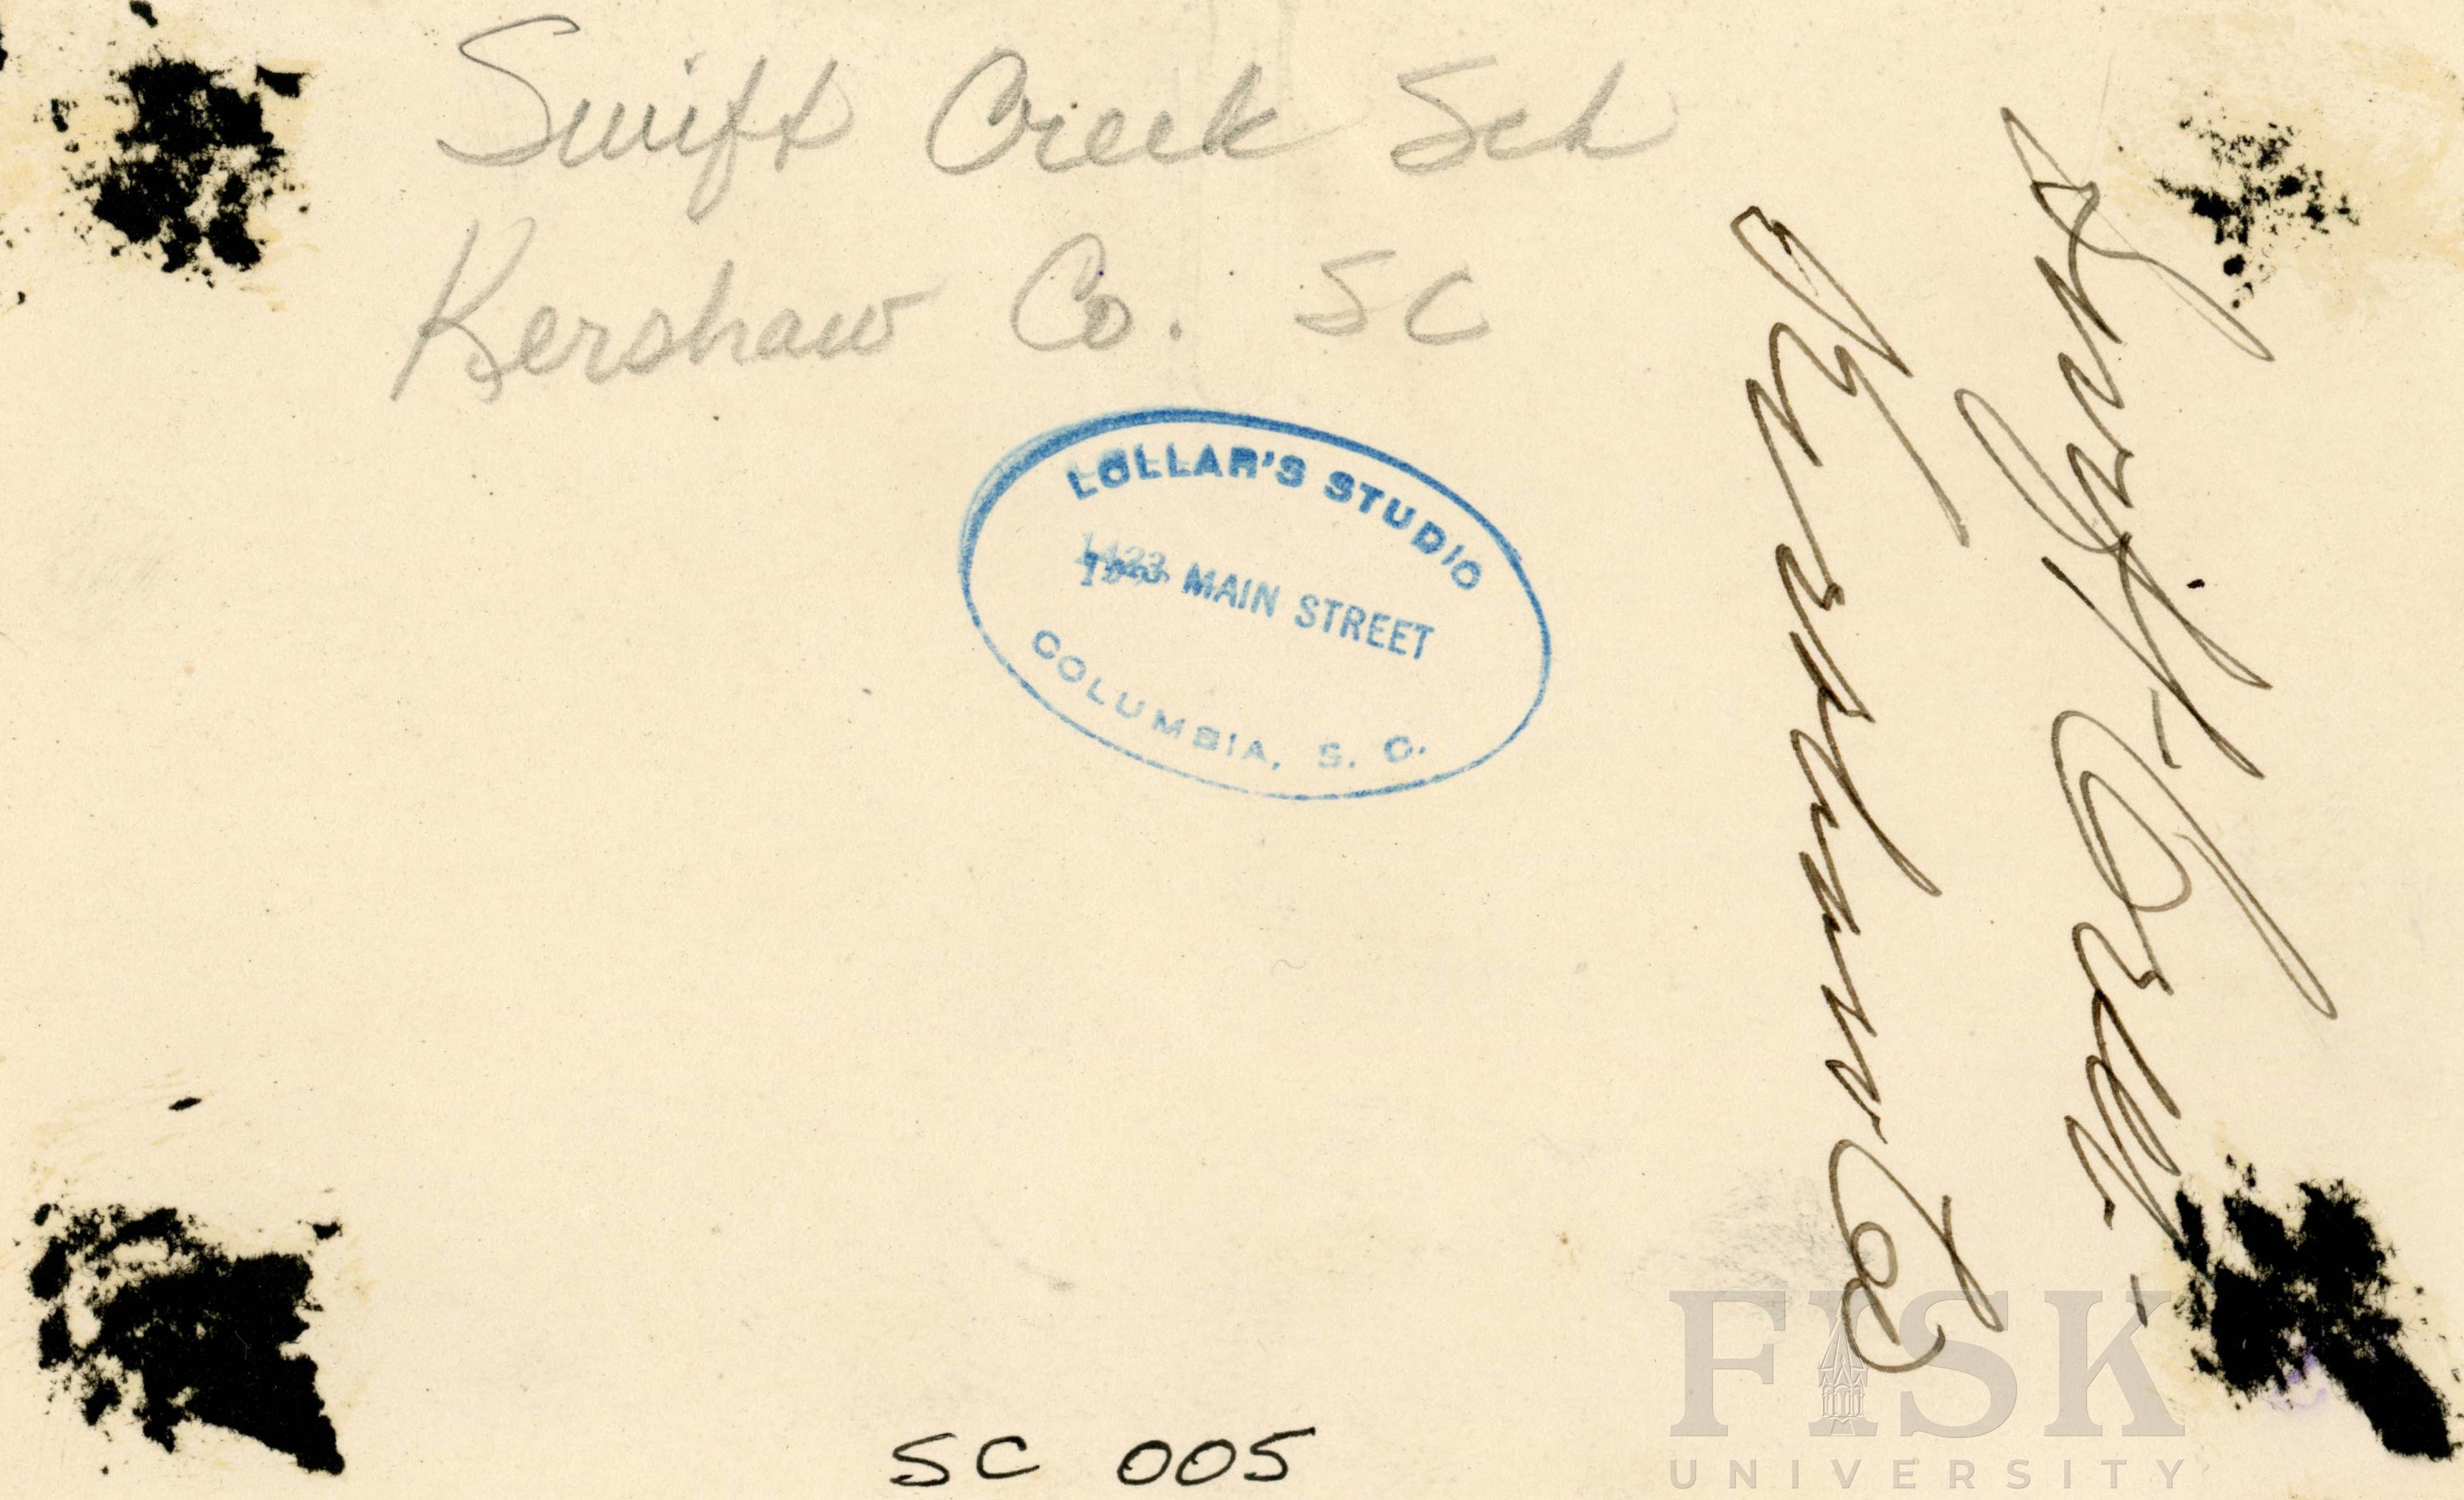 Swift Creek Sch
Kershaw Co. SC
LOLLAR'S STUDIO
1423 MAIN STREET
COLUMBIA, S. C.
Swift Creek
Kershaw Co
SC 005
FISK
UNIVERSITY